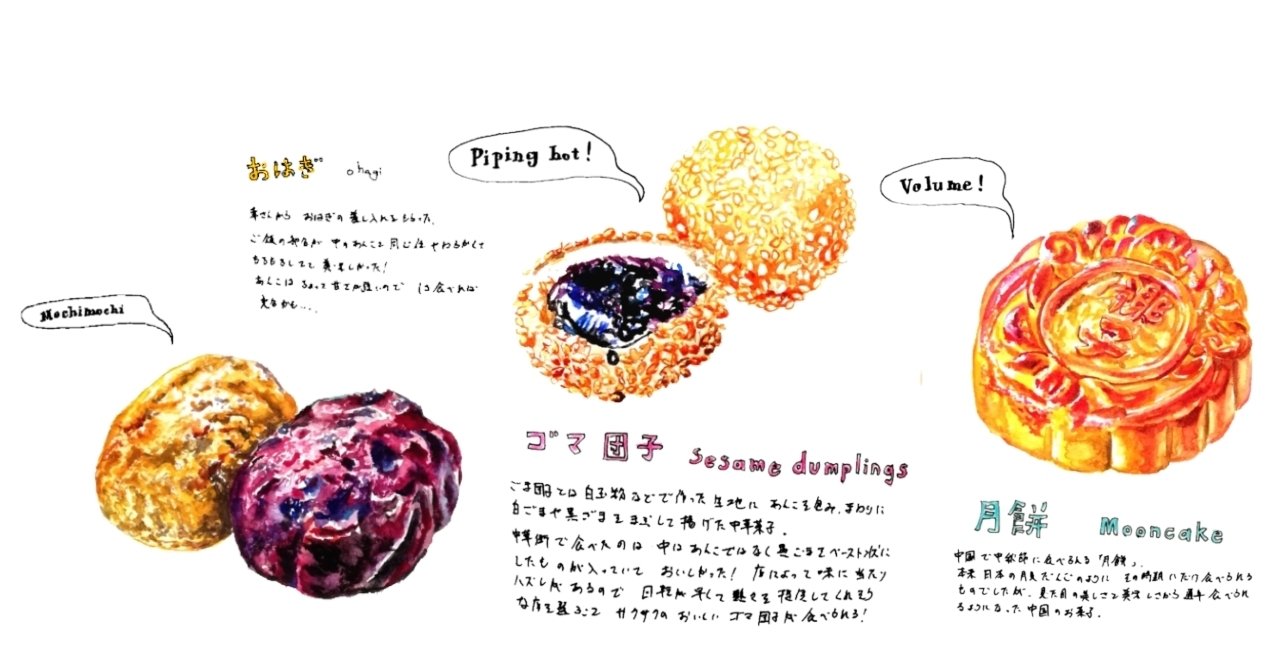 おはぎ ohagi
幸さんから おはぎの差し入れをもらった。
ご飯の部分が 中のあんこと同じ位やわらかくて
もちもちしてて 美味しかった!
あんこは ちょっと甘さが強いので 1コ食べれば
充分かも....
Mochimochi
Piping hot!
ゴマ団子 sesame dumplings
ごま団子とは 白玉粉などで作った生地に あんこを包み、まわりに
白ごまや黒ごまをまぶして 揚げた中華菓子。
中華街で食べたのは 中はあんこではなく黒ごまをペースト状に
したものが入っていて おいしかった! 店によって味に当たり
ハズレがあるので 回転が早くて熱々を提供してくれそう
な店を選ぶと サクサクの おいしい ゴマ団子が食べられる!
Volume!
月餅 Mooncake
中国で中秋節に食べられる「月餅」。
本来 日本の月見だんごのように その時期にだけ食べられる
ものでしたが、見た目の美しさと美味しさから通年食べられ
るようになった 中国のお菓子。